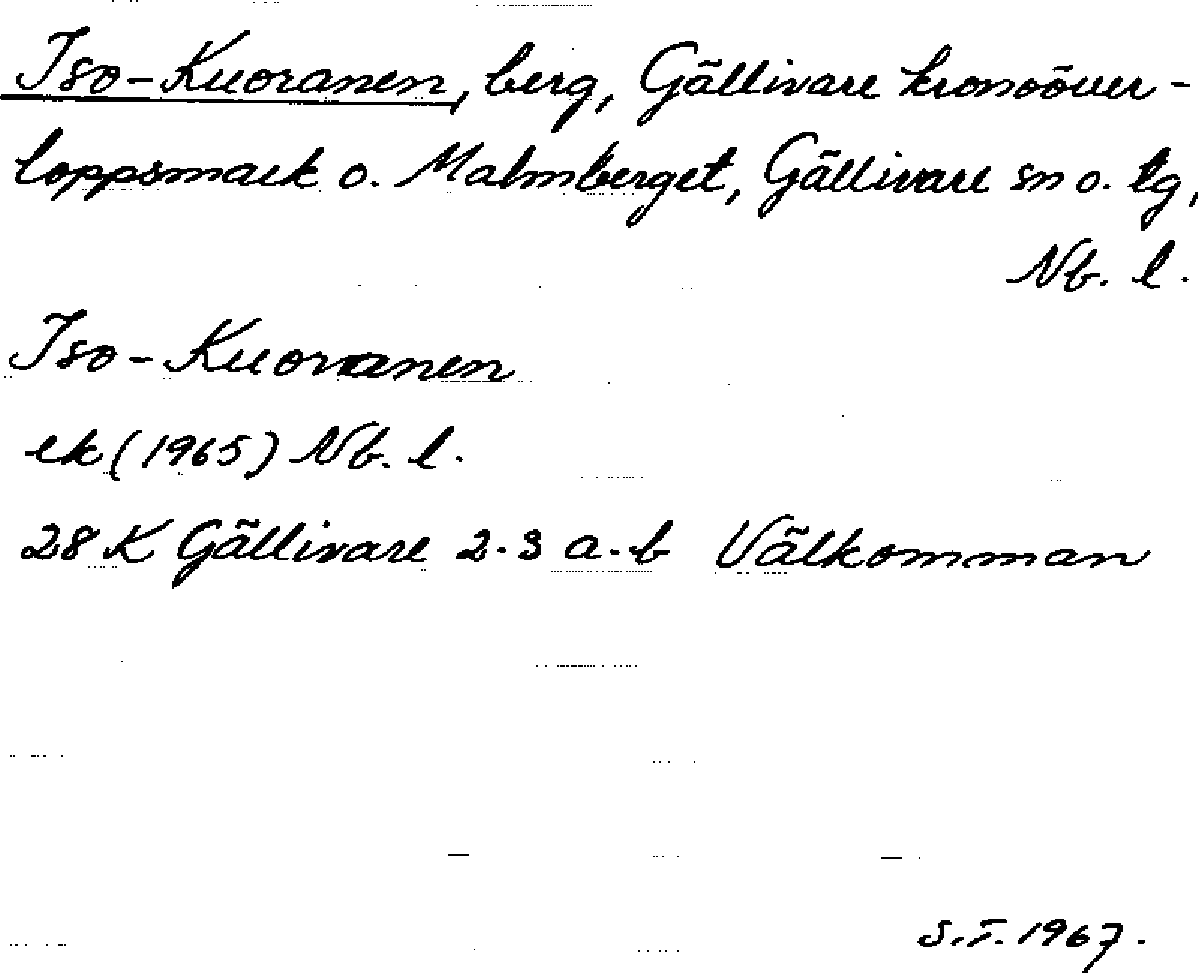 Iso-Kuoranen, berg, Gällivare kronoöver-
loppsmark o. Malmberget, Gällivare sn o. tg,
Nb. l.
Iso-Kuoranen
ek (1965) Nb. l.
28 K Gällivare 2-3 a-b Välkomman
S.F. 1967.